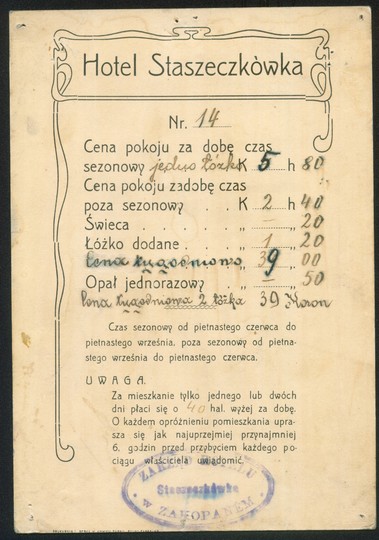 Hotel Staszeczkówka
Nr. 14
Cena pokoju za dobę czas
sezonowy jedno łóżko K 5 h 80
Cena pokoju za dobę czas
poza sezonowy . . K 2 h 40
Świeca . . . . . . „ — „ 20
Łóżko dodane . . . . „ 1 „ 20
Cena tygodniowo „ 39 „ 00
Opał jednorazowy . „ — „ 50
Cena tygodniowa 2 łóżka 39 Koron
Czas sezonowy od pietnastego czerwca do
pietnastego września, poza sezonowy od pietna-
stego września do pietnastego czerwca.
UWAGA.
Za mieszkanie tylko jednego lub dwóch
dni płaci się o 40 hal. wyżej za dobę.
O każdem opróżnieniu pomieszkania upra-
sza się jak najuprzejmiej przynajmniej
6. godzin przed przybyciem każdego po-
ciągu właściciela uwiadomić.
Staszeczkówka
w ZAKOPANEM